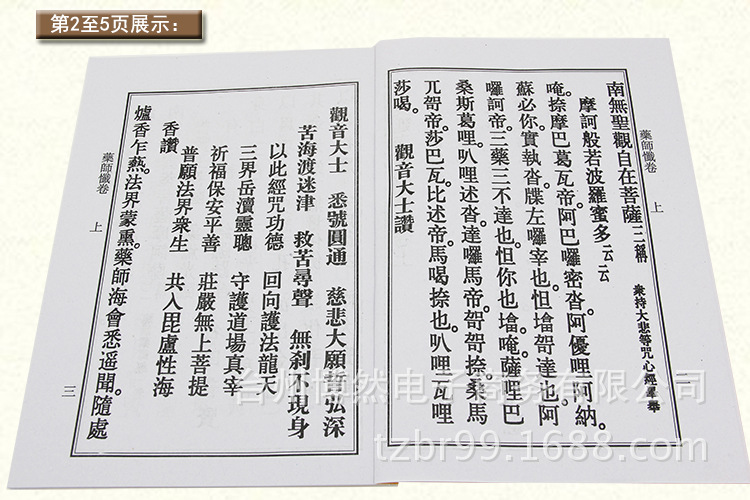 第2至5页展示：
南無聖觀自在菩薩三稱 衆持大悲等咒心經畢舉
摩訶般若波羅蜜多云云
唵。捺摩巴葛瓦帝。阿巴囉密沓。阿優哩阿納。
蘇必你。實執沓牒左囉宰也。怛塎哿達也。阿
囉訶帝。三藥三不達也。怛你也塎。唵。薩哩巴
桑斯葛哩。叭哩述沓。達囉馬帝。哿哿捺。桑馬
兀哿帝。莎巴瓦。比述帝。馬喝捺也。叭哩瓦哩
莎喝。 觀音大士讚
藥師懺卷 上
觀音大士 悉號圓通 慈悲大願誓弘深
苦海渡迷津 救苦尋聲 無刹不現身
以此經咒功德 回向護法龍天
三界岳瀆靈聰 守護道場真宰
祈福保安平善 莊嚴無上菩提
普願法界衆生 共入毘盧性海
香讚
爐香乍爇。法界蒙熏。藥師海會悉遥聞。隨處
藥師懺卷 上 三
台州博然电子商务有限公司
tzbr99.1688.com